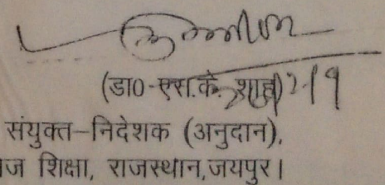 (डा0-एस.के. शाह)
संयुक्त-निदेशक (अनुदान),
ज शिक्षा, राजस्थान,जयपुर।